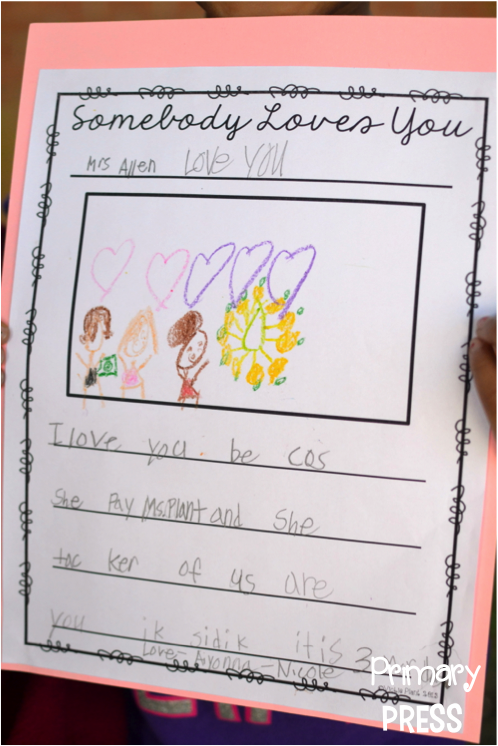 Somebody Loves You
Mrs Allen Love YOU
I love you be cos
She Pay Ms. Plant and She
tac ker of us are
you ik sidik it is 3
Love - - Nicole
Primary
PRESS